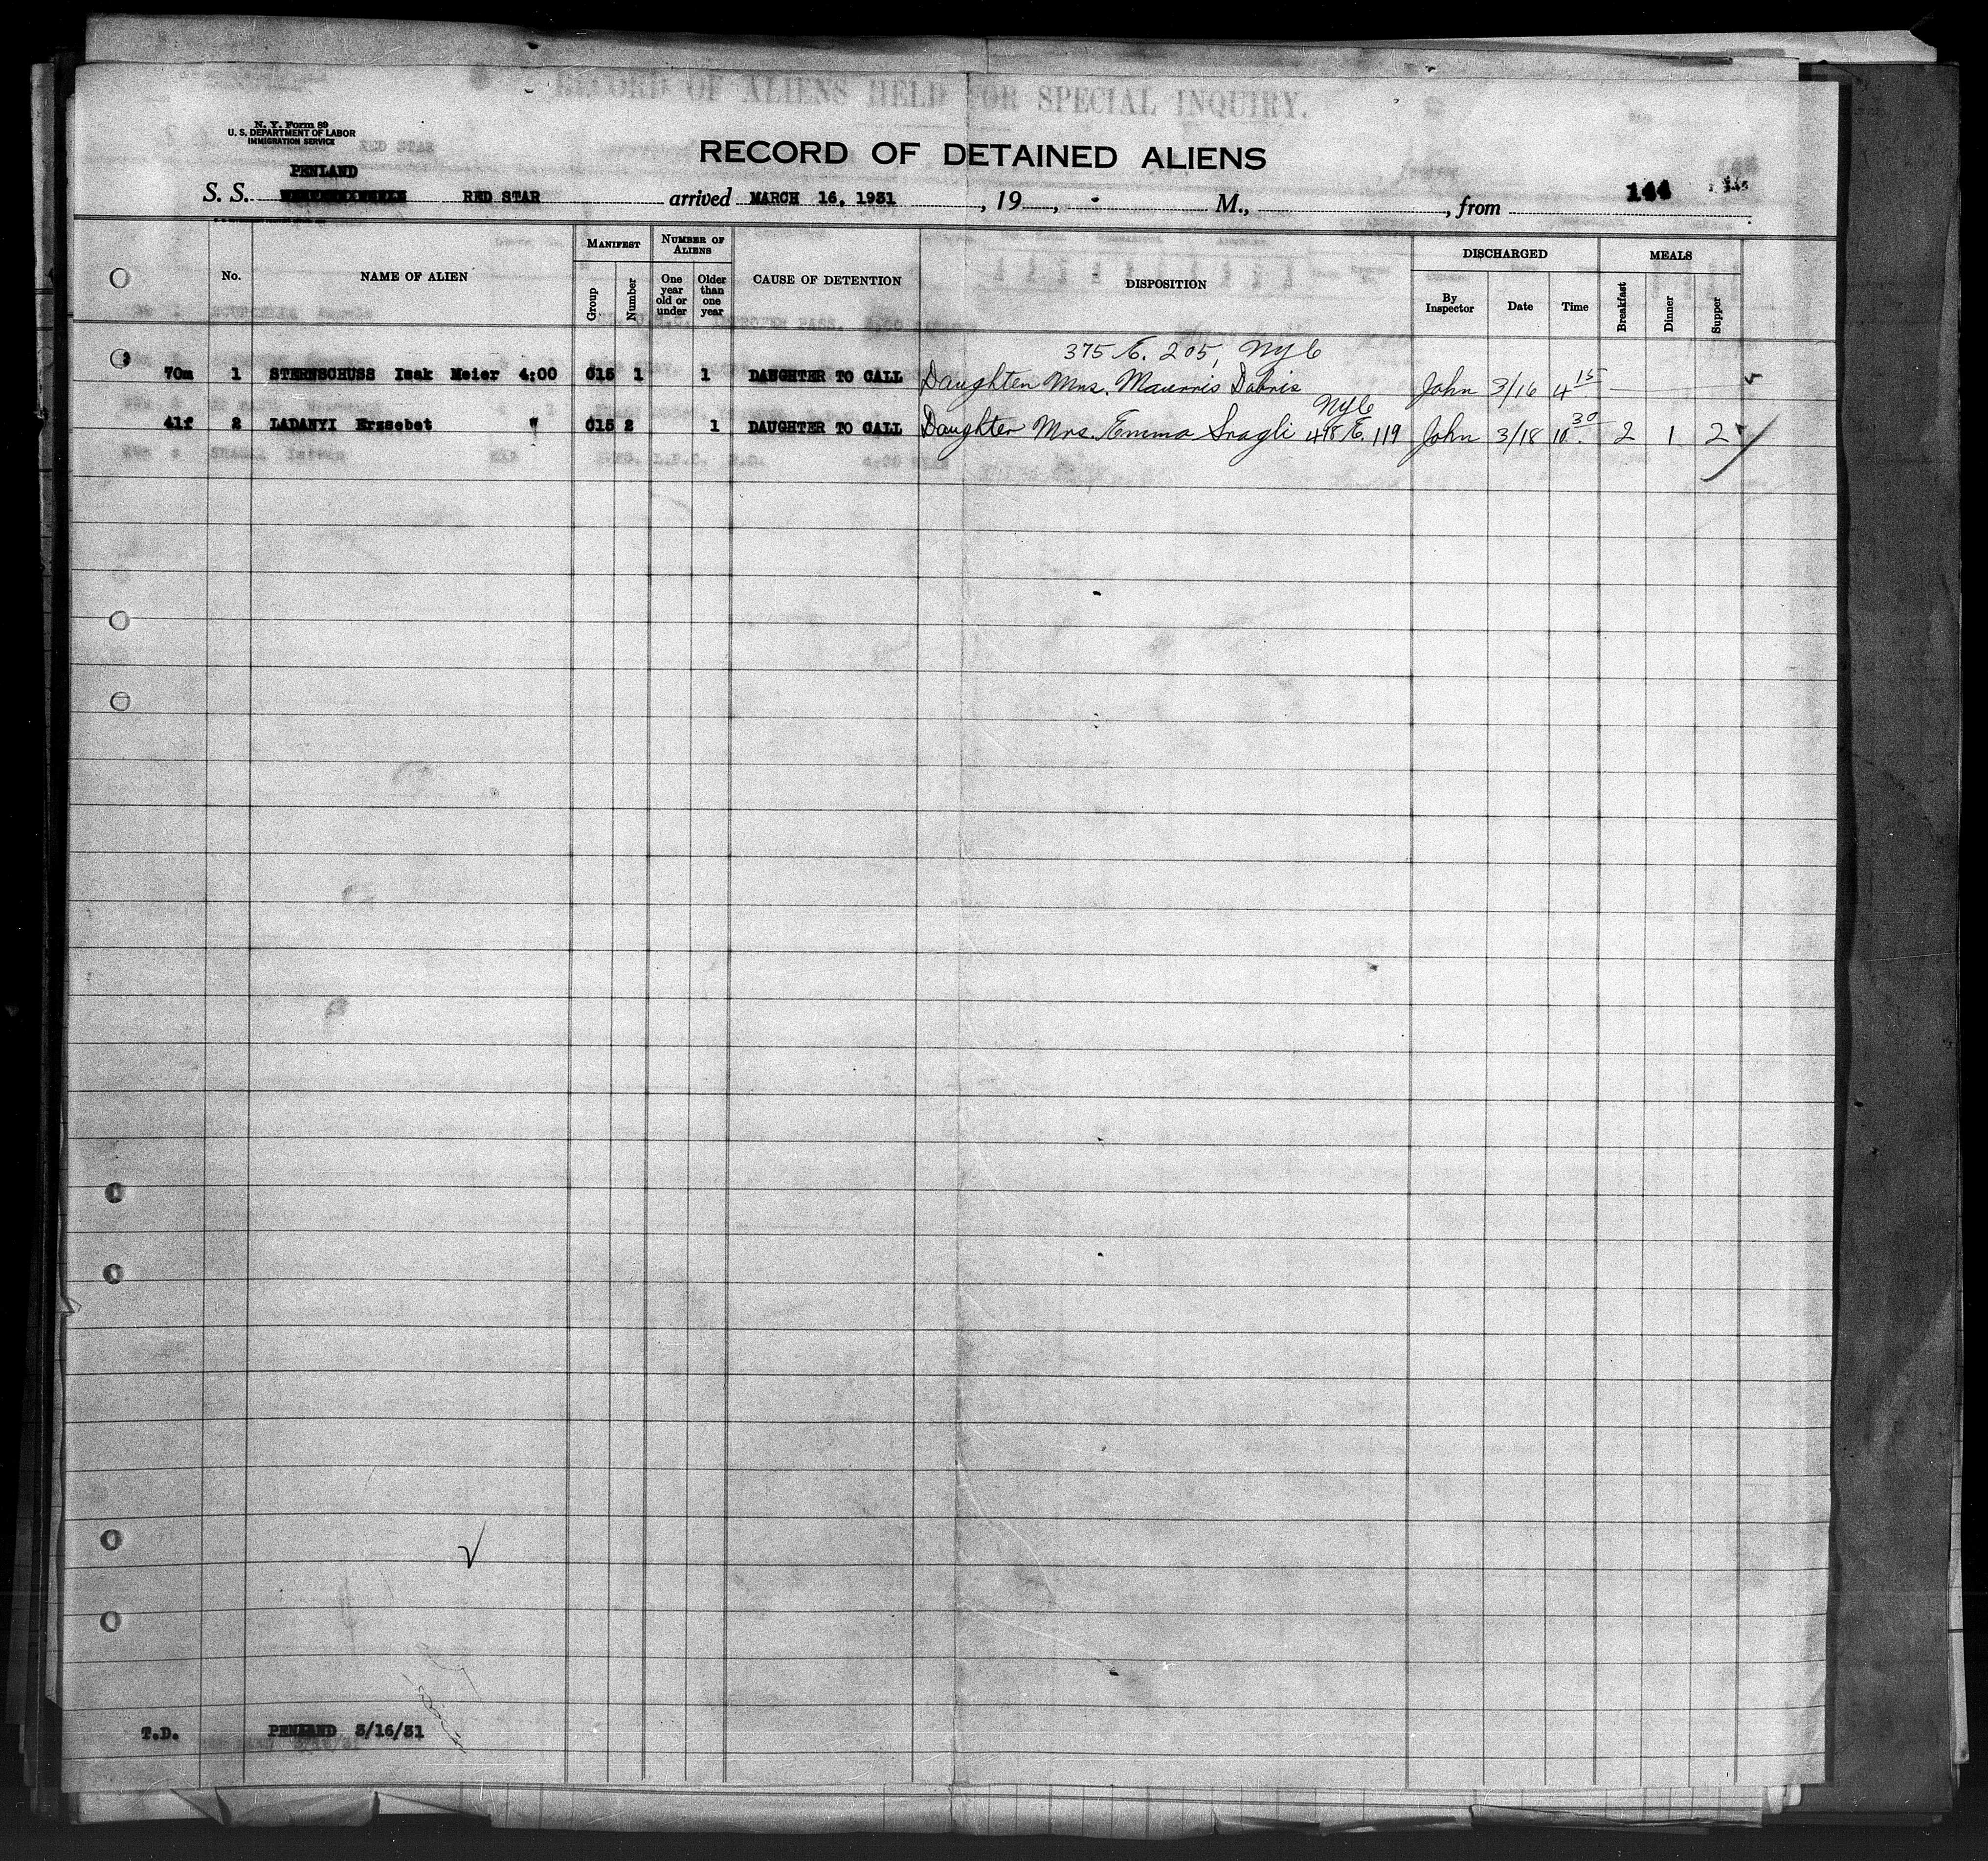 N. Y. Form 89
U. S. DEPARTMENT OF LABOR
IMMIGRATION SERVICE
RECORD OF ALIENS HELD FOR SPECIAL INQUIRY.
RED STAR
RECORD OF DETAINED ALIENS
PENLAND
S. S. RED STAR arrived MARCH 16, 1931, 19 , M., , from 144
No. NAME OF ALIEN MANIFEST Group Number NUMBER OF ALIENS One year old or under Older than one year CAUSE OF DETENTION DISPOSITION DISCHARGED By Inspector Date Time MEALS Breakfast Dinner Supper
375 E. 205, NYC
70m 1 STERNSCHUSS Isak Meier 4:00 015 1 1 DAUGHTER TO CALL Daughter Mrs. Maurris Dabris John 3/16 4 15
NYC
41f 2 LADANYI Erzsebet " 015 2 1 DAUGHTER TO CALL Daughter Mrs. Emma Sragli 418 E. 119 John 3/18 10 30 2 1 2
T.D. PENLAND 3/16/31